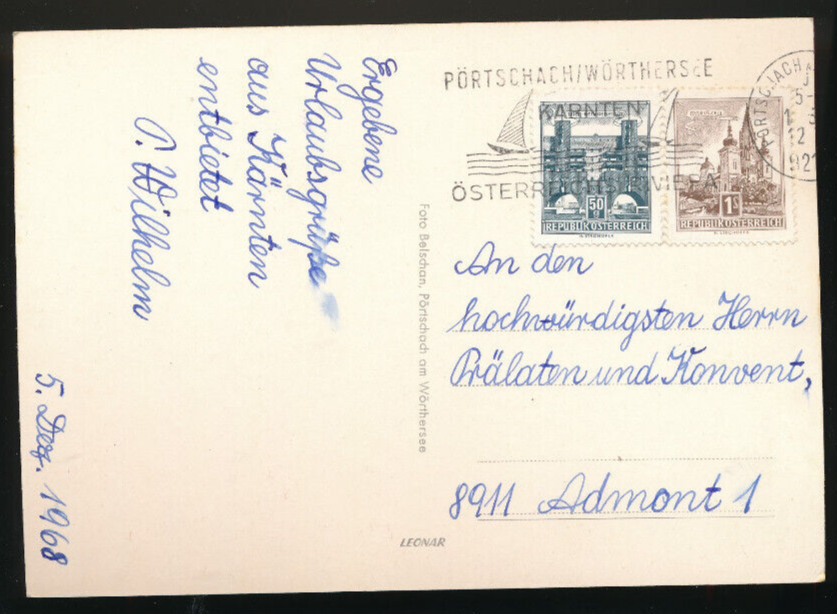 Ergebene
Urlaubsgrüße
aus Kärnten
entbietet
P. Wilhelm
5. Dez. 1968
Foto Belschan, Pörtschach am Wörthersee
LEONAR
PÖRTSCHACH/WÖRTHERSEE
KÄRNTEN
ÖSTERREICHS RIVIERA
50 g
REPUBLIK ÖSTERREICH
1 S
REPUBLIK ÖSTERREICH
PÖRTSCHACH A
An den
hochwürdigsten Herrn
Prälaten und Konvent,
8911 Admont 1